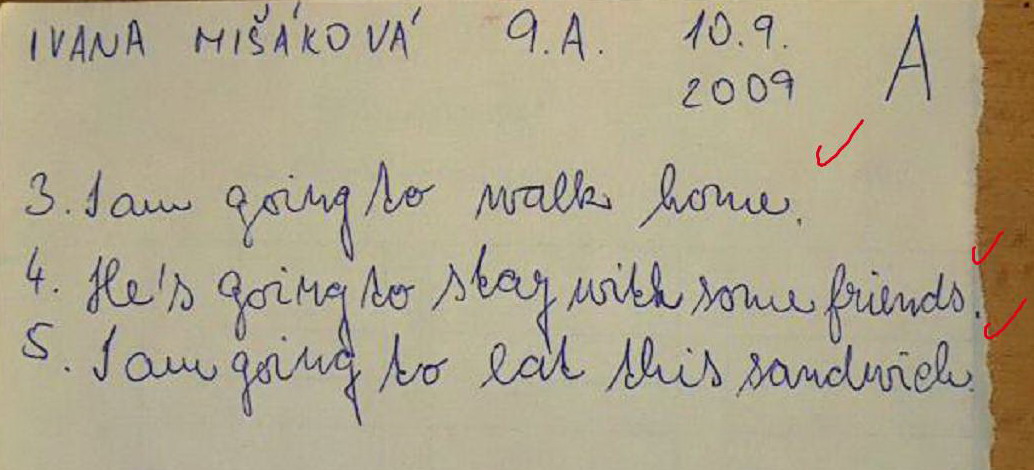 IVANA MIŠÁKOVÁ 9.A. 10.9. A
2009
3. I am going to walk home.
4. He's going to stay with some friends.
5. I am going to eat this sandwich.